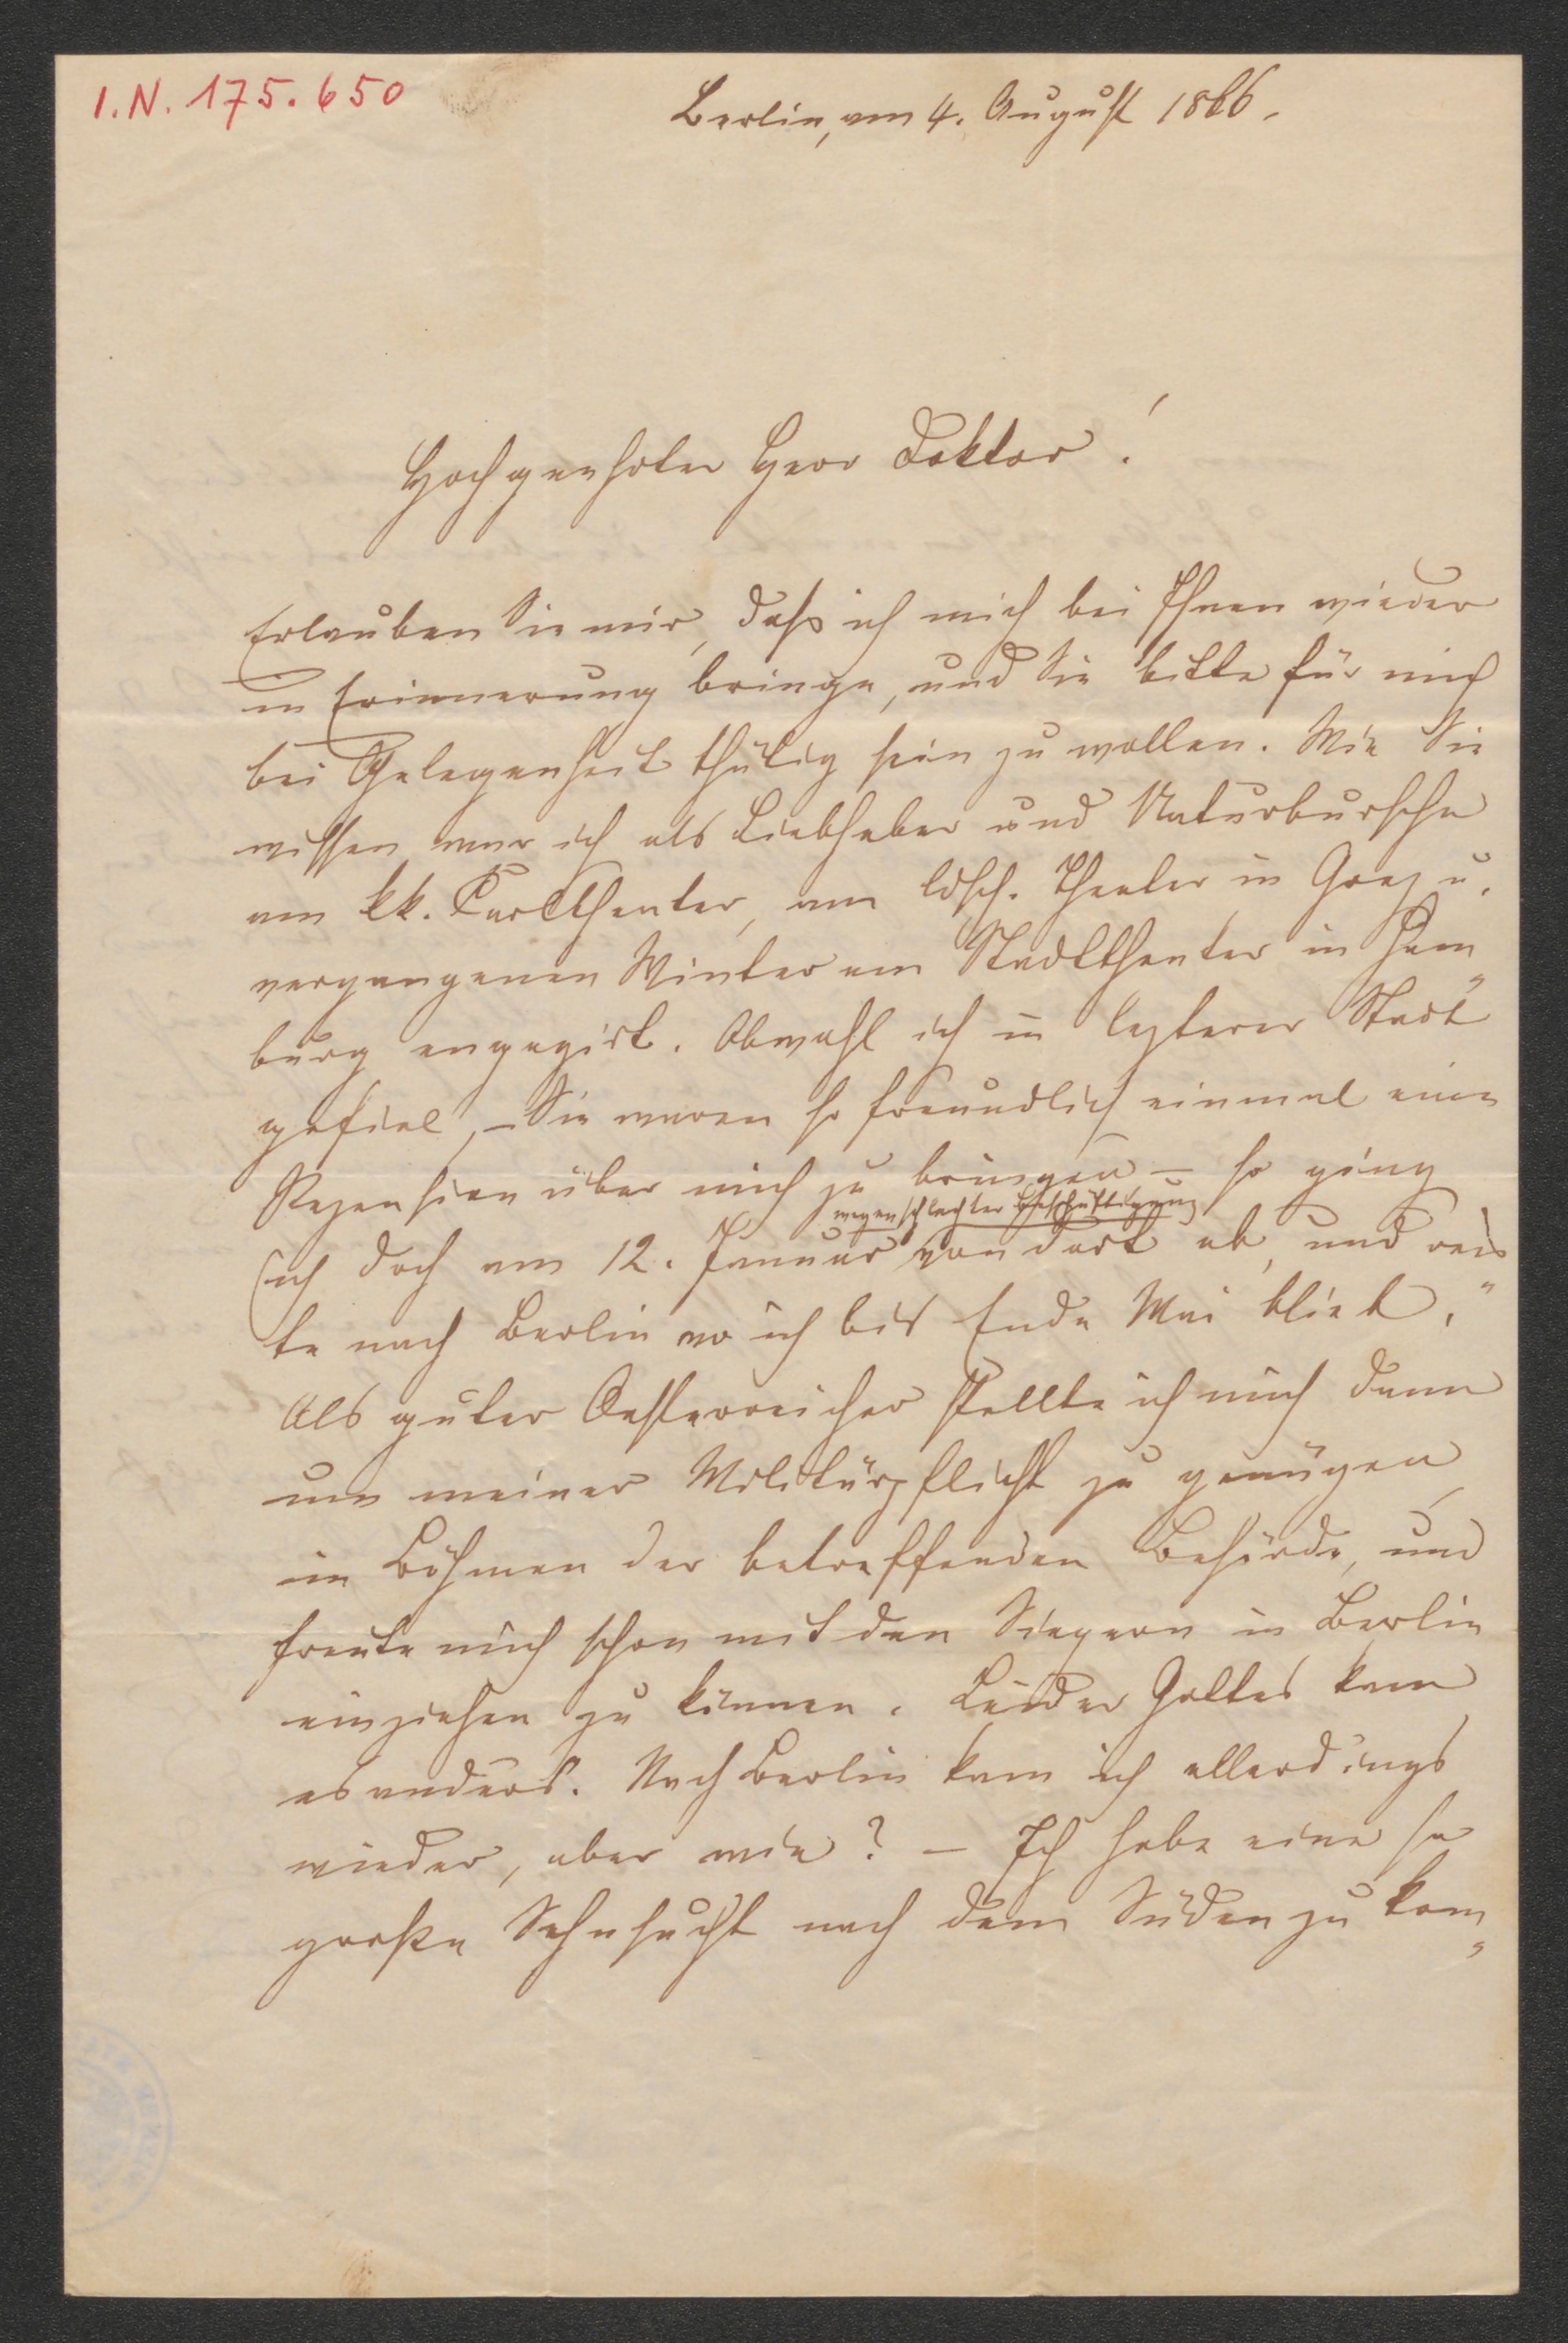 I.N. 175.650
Berlin, am 4. August 1866.
Hochgeehrter Herr Doktor!
Erlauben Sie mir, daß ich mich bei Ihnen wieder
in Erinnerung bringe, und Sie bitte für mich
bei Gelegenheit thätig sein zu wollen. Wie Sie
wissen war ich als Liebhaber und Naturbursche
am kk. Carltheater, am ldsch. Theater in Graz u.
vergangenen Winter am Stadttheater in Ham„
burg engagirt. Obwohl ich in lezterer Stadt
gefiel, – Sie waren so freundlich einmal eine
Rezension über mich zu bringen – so ging
wegen schlechter Beschäftigung
ich doch am 12. Januar von dort ab, und reis„
te nach Berlin wo ich bis Ende Mai blieb.
Als guter Oesterreicher stellte ich mich dann
um meiner Militärpflicht zu genügen,
in Böhmen der betreffenden Behörde, und
freute mich schon mit den Siegern in Berlin
einziehen zu können. Leider Gottes kam
es anders. Nach Berlin kam ich allerdings
wieder, aber wie? – Ich habe eine so
große Sehnsucht nach dem Süden zu kom„